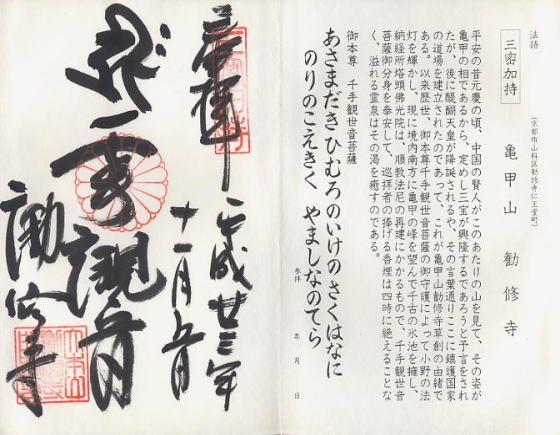 法語
三密加持
亀甲山　勧修寺
(京都市山科区勧修寺仁王堂町)
平安の昔元慶の頃、中国の賢人がこのあたりの山を見て、その姿が
亀甲の相であるから、定めし三宝が興隆するであろうと予言をされ
たが、後に醍醐天皇が降誕されるや、その言葉通りここに鎮護国家
の道場を建立されたのであって、これが亀甲山勧修寺草創の由緒で
ある。以来歴世、御本尊千手観世音菩薩の御守護によって小野の法
灯を輝かし、現に境内南方に亀甲の峰を望んで千古の氷池を擁し、
納経所塔頭佛光院は、順教法尼の再建にかかるもので、千手観世音
菩薩御分身を奉安して、巡拝者の捧げる香煙は四時に絶えることな
く、溢れる霊泉はその渇を癒すのである。
御本尊　千手観世音菩薩
あさまだきひむろのいけのさくはなに
のりのこえきく　やましなのてら
参拝　年　月　日
奉拝
平成廿三年
十一月五日
勧修寺